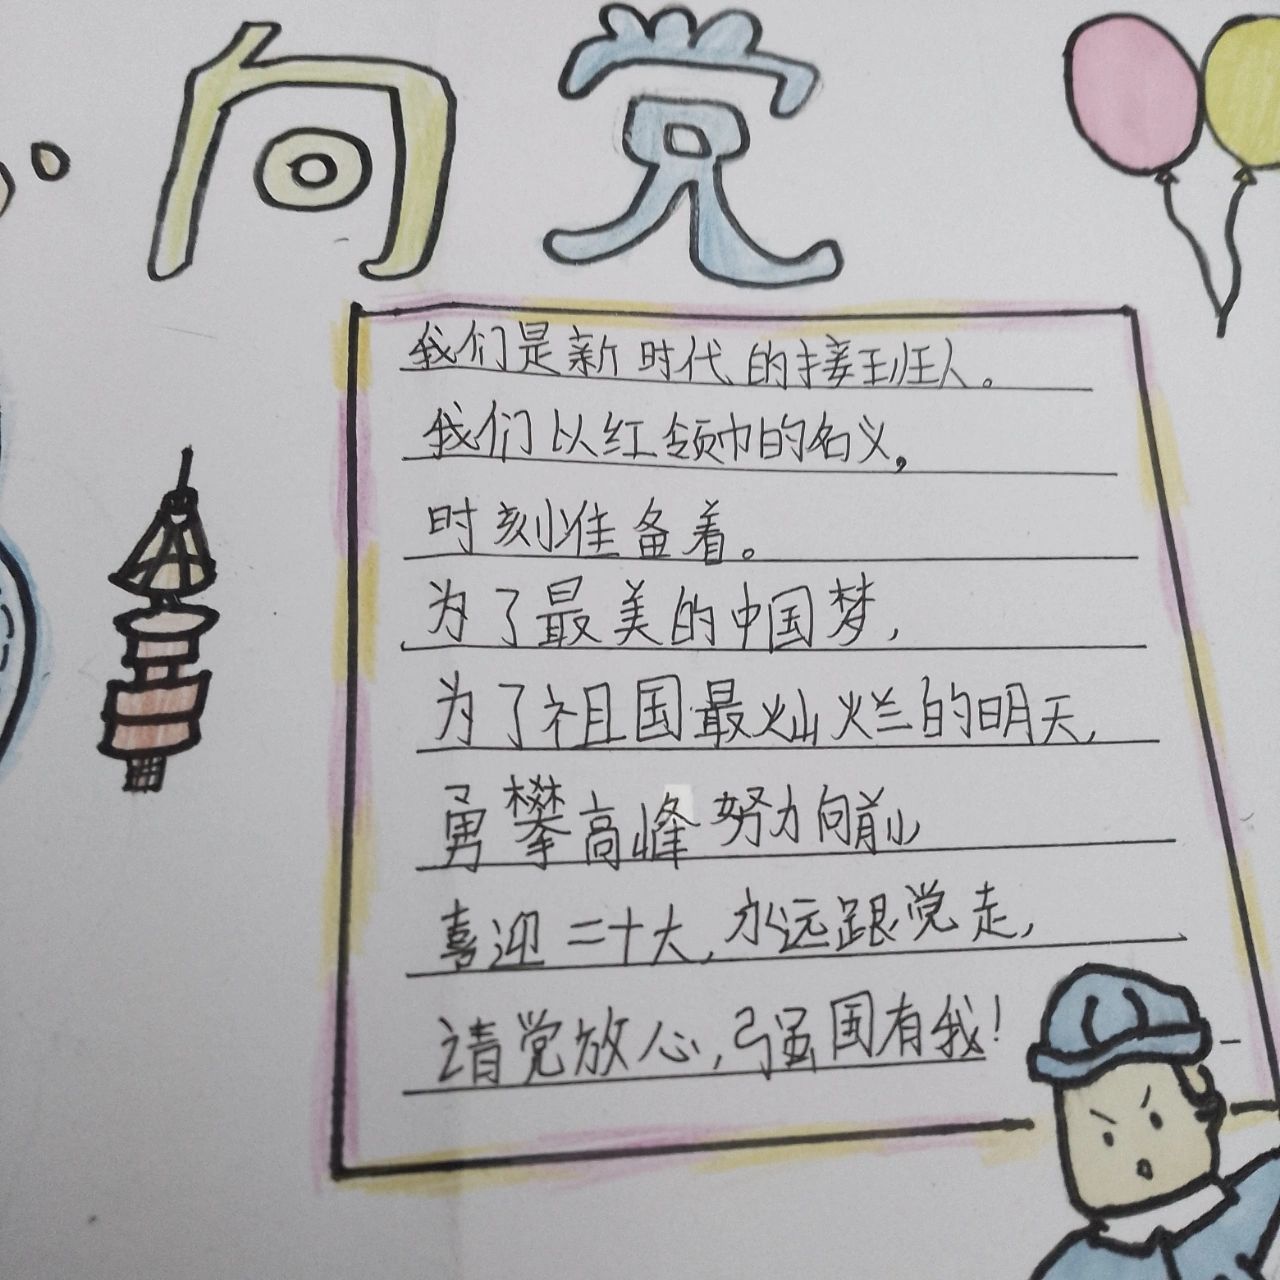 向党
我们是新时代的接班人。
我们以红领巾的名义,
时刻准备着。
为了最美的中国梦,
为了祖国最灿烂的明天,
勇攀高峰努力向前
喜迎二十大,永远跟党走,
请党放心,强国有我!